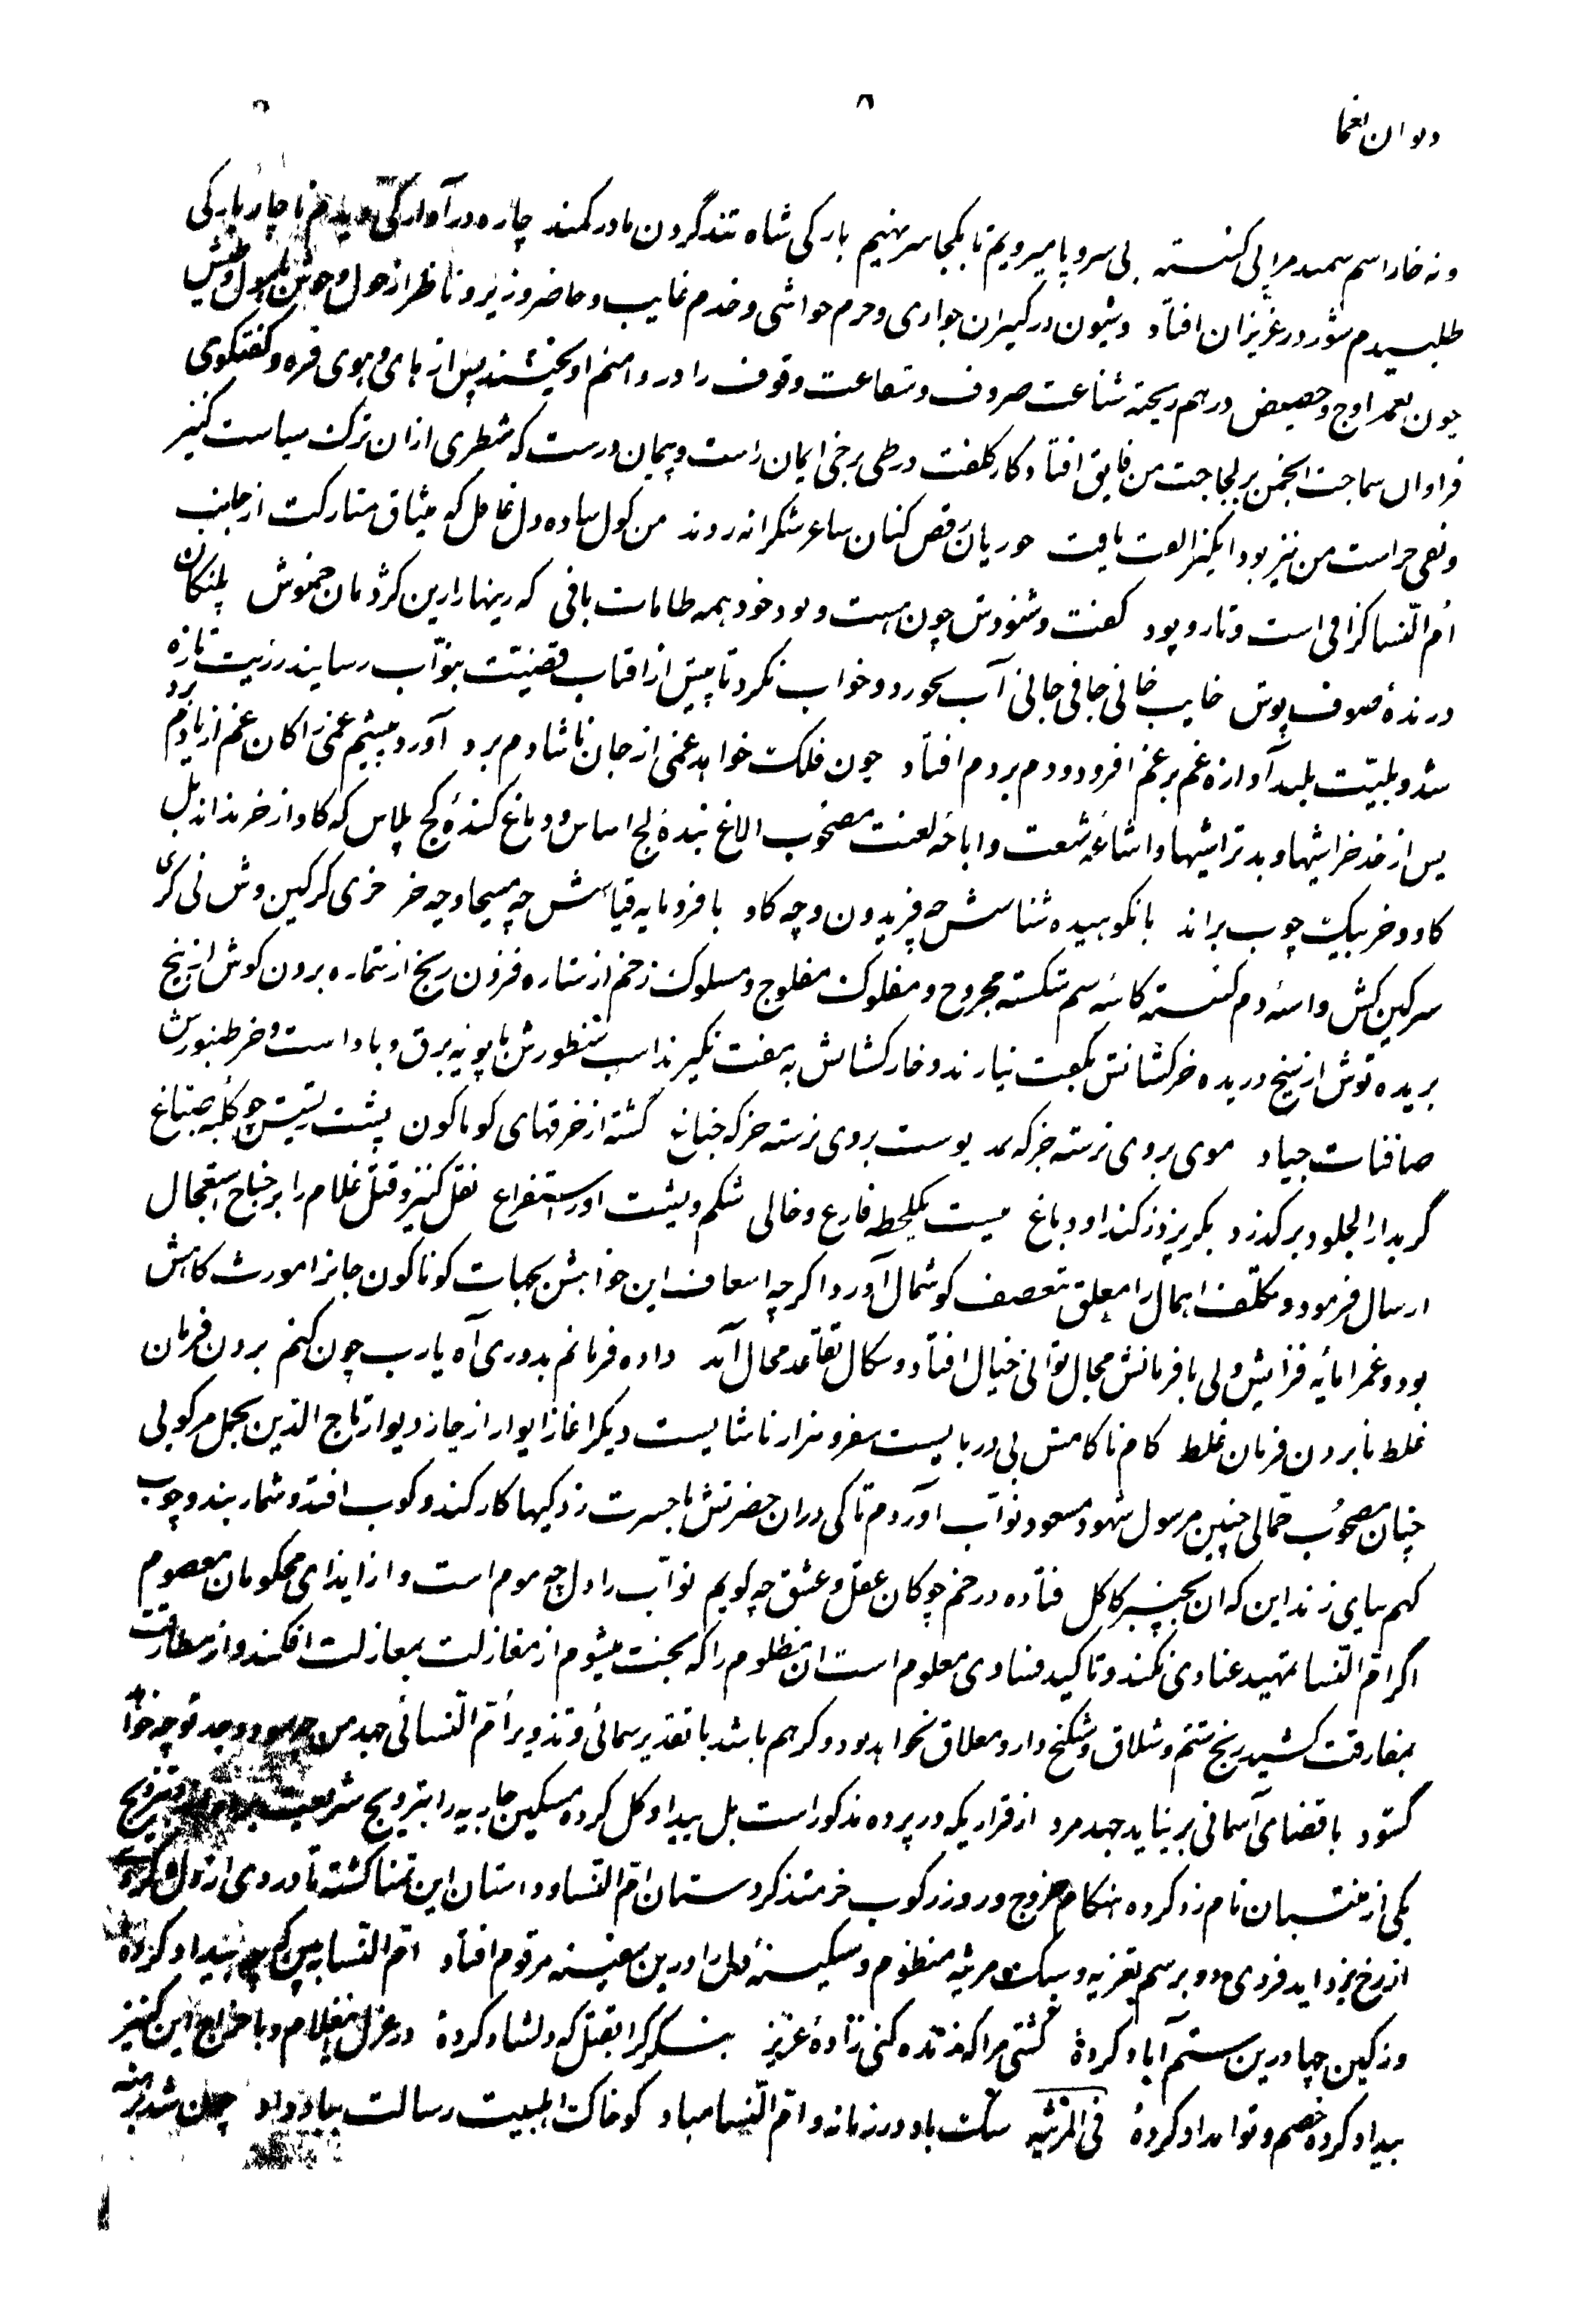 دیوان یغما
۸
ونه خارا سم سمند مرا پی کنسته بی سر و پا میرویم تا بکجا سر نهیم بارکی شاه تند گردن ما در کمند چاره در آوارگی دیدم ناچار بارکی
طلبیدم شور در عزیزان افتاد و شیون در کنیزان جواری و حرم حواشی و خدم غایب و حاضر وزیر و ناظر از هول و
چون بعمد اوج و حضیض در هم ریخته شناعت صروف و شفاعت وقوف را در دامنم آویختند پس از های و هوی فره و گفتگوی
فراوان سماجت انجمن بر لجاجت من فایق افتاد کار کلفت در طی برخی ایمان راست و پیمان درست که شطری ازان ترک سیاست کنیز
و نفی حراست من نیز بود ایکنز الفت یافت حوریان رقص کنان ساغر شکرانه زدند من کول ساده دل غافل که میثاق متارکت از جانب
ام النسا گزافی است و تار و پود گفت و شنودش چون هست و بود خود همه طامات بافی که زینهار ازین کژدمان خموش پلنکان
درندهٔ صوف پوش خایب خانی جافی جانی آب نخورد و خواب نکرد تا پیش از آفتاب قضیتت بنواب رسانیدند رزیت تازه
شد و بلیت بلند آوازه غم بر غم افزود و دم بر دم افتاد چون فلک خواهد غمی از جان ناشادم برد آورد پیشم غمی زا کان غم از یادم برد
پس از خدخراشیها و بدتراشیها و اشاعهٔ شنعت و اباحه لعنت مصحوب الاغ بندهٔ لج اساس و دماغ کندهٔ کج پلاس که گاو از خر نداند بل
گاو و خر بیک چوب براند با نکوهیده شناسش چه فریدون و چه کاو با فرومایه قیاسش چه مسیحا و چه خر خری کرکین وش نی کژی
سرکین کش واسه دم کنسته کاسه سم شکسته مجروح و مفلوک مفلوج و مسلوک زخم از ستاره فزون ریخ از شماره برون گوش از بیخ
بریده توش از بیخ دریده خرکشانش بکعب نیارند و خارکشانش به مفت نگیرند اسب تنطورش با پویه برق و باد است و خر طنبورش
صافنات جیاد موی بروی نرسته جز که نمد پوست بروی نرسته جز که جناغ گشته از خرقهای کوناکون پشت ریشش چو کلبه صباغ
گر بدار الجلود بر گذرد بگریزد ز گند او دباغ نیست یک لحظه فارغ و خالی شکم و پشت او ز استفراغ نقل کنیز و قتل غلام را بر جناح استعجال
ارسال فرمود و مکلف اهمال را معلق تعصف کوشمال آورد اگر چه اسعاف این خواهش بجهات کوناکون جانرا مورث کاهش
بود و غمرا مایه فزایش ولی با فرمانش مجال توانی خیال افتاد و سکال تقاعد محال آمد داده فرمانم بدوری آه یارب چون کنم بردن فرمان
غلط نابردن فرمان غلط کام ناکامش بی دربایست سفر و سزار ناشایست دیگر آغاز ایوار از جاز و یوار تاج الدین بجبل مرکوبی
چنان مصحوب حمالی چنین مرسول شهود مسعود نواب آوردم تا کی دران حضرتش با جسرت زدگیها کار کند و کوب افتد و شمار بند و چوب
کهم بپای زند این که ان بچنبر کاکل فتاده در خم چوکان عقل و عشق چه گویم نواب را دل چو موم است و از ایذای محکومان معصوم
اگر ام النسا تمهید عنادی نکند و تاکید فسادی معلوم است ان مظلوم را که بخت میشوم از مغازلت بمعازلت افکند و از مطارقت
بمفارقت کشید رنج ستم و شلاق و شکنج دار و معلاق نخواهد بود و گر هم باشد با تقدیر سمائی و تذویر ام النسائی جهد من چه سود و جد تو چه خواهد
گشود با قضای آسمانی بر نیاید جهد مرد از قراریکه در پرده مذکور است بل بیداد گل کرده مسکین جاریه را بترویج شریعت
یکی از منتسبان نام زد کرده هنگام خروج و روز رکوب خر متذکر دستان ام النسا و داستان این تمنا گشته تا دردی از دل
از رخ بزداید فردی دو برسم تعزیه و سبک مرثیه منظوم و سکینهٔ دل را درین سفینه مرقوم افتاد ام النسا ببین که چه بیداد کرده
وز کین چها درین ستم آباد کردهٔ گشتی مرا که زنده کنی زادهٔ عزیز بنگر کرا بقتل که دلشاد کردهٔ در عزل این غلام و با خراج این کنیز
بیداد کرده خصم و تو امداد کردهٔ فی المرثیه سگ باد در زمانه و ام النسا مباد کو خاک اهلبیت رسالت بباد داد چون شد